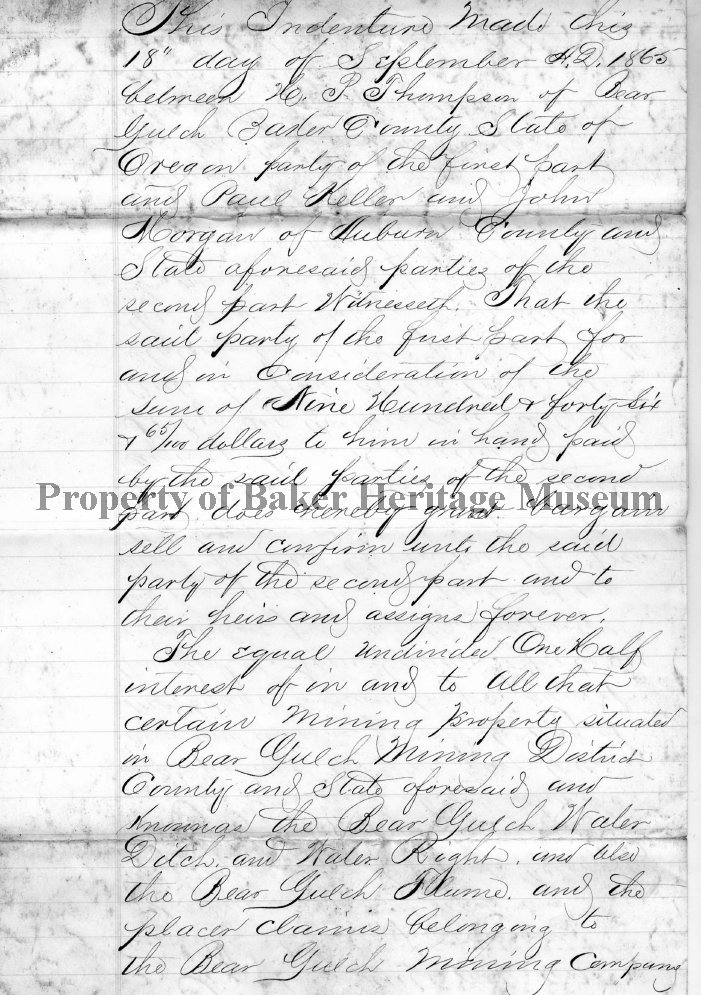 This Indenture Made this
18" day of September A.D. 1865
between H. P. Thompson of Bear
Gulch Baker County State of
Oregon party of the first part
and Paul Keller and John
Morgan of Auburn County and
State aforesaid parties of the
second part Witnesseth. That the
said party of the first part for
and in Consideration of the
sum of Nine Hundred & forty six
& 65/100 dollars to him in hand paid
by the said parties of the second
Property of Baker Heritage Museum
part, does hereby grant bargain
sell and confirm unto the said
party of the second part and to
their heirs and assigns forever.
The Equal undivided One Half
interest of in and to all that
certain Mining Property situated
in Bear Gulch Mining District
County and State aforesaid and
known as the Bear Gulch Water
Ditch, and Water Right, and also
the Bear Gulch Flume, and the
placer claims belonging to
the Bear Gulch Mining Company